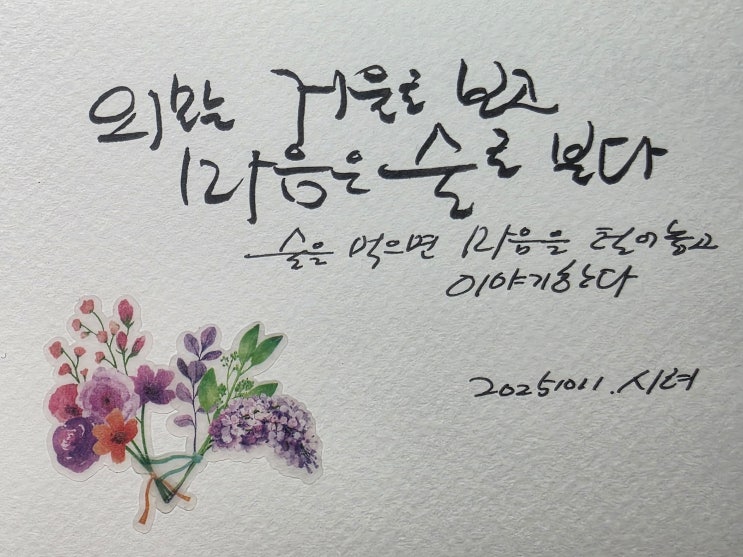 외모는 거울로 보고
마음은 술로 본다
술을 먹으면 마음을 털어놓고
이야기한다
20251011. 시려